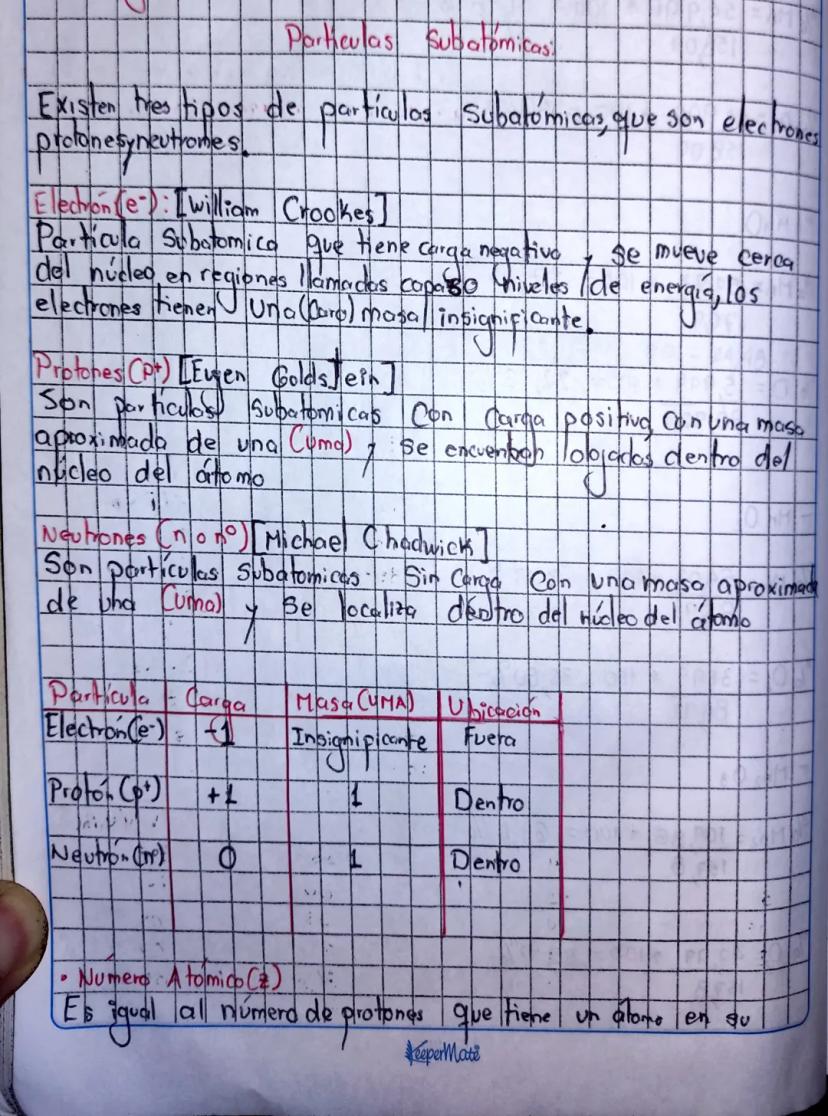 Partículas Subatómicas.
Existen tres tipos de partículas Subatómicas, que son electrones
protones y neutrones.
Electrón (e-): [William Crookes]
Partícula Subatomica que tiene carga negativa y se mueve cerca
del núcleo en regiones llamadas capas o niveles de energía, los
electrones tienen una (Carg) masa insignificante.
Protones (p+) [Eugen Goldstein]
Son partículas Subatomicas Con Carga positiva con una masa
aproximada de una (uma) y se encuentran alojados dentro del
núcleo del átomo
Neutrones (n o n°) [Michael Chadwick]
Son partículas subatomicas Sin Carga Con una masa aproximada
de una (uma) y se localiza dentro del núcleo del átomo
Partícula Carga Masa (UMA) Ubicación
Electrón (e-) -1 Insignificante Fuera
Protón (p+) +1 1 Dentro
Neutrón (n°) 0 1 Dentro
• Número Atómico (z)
Es igual al número de protones que tiene un átomo en su
KeeperMate